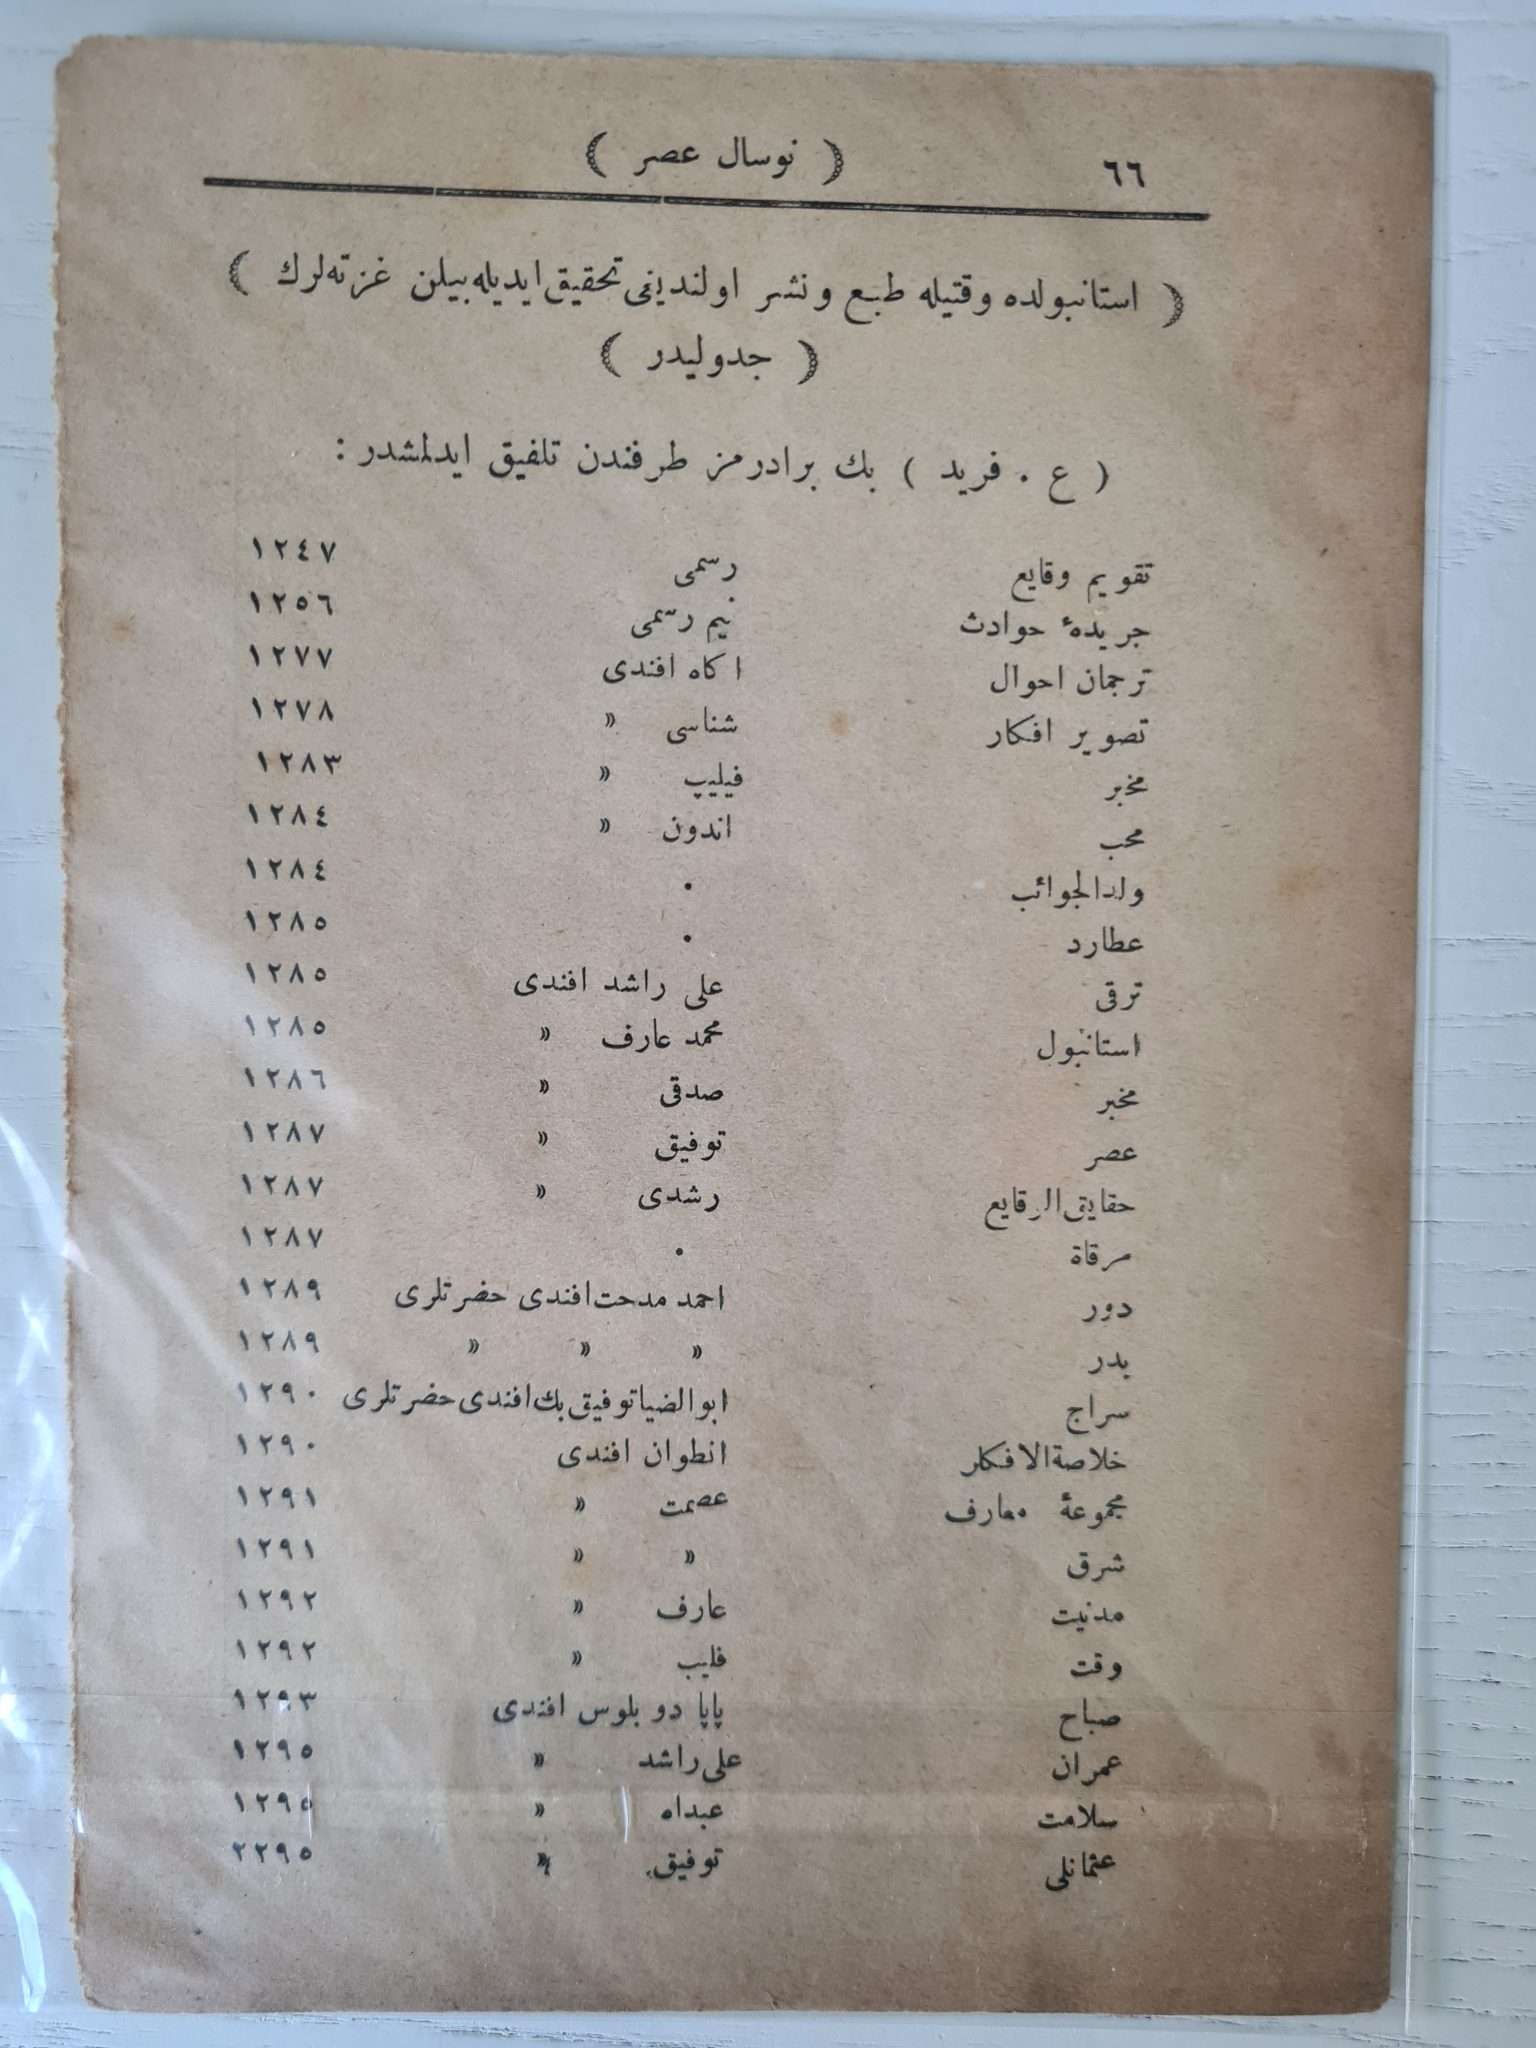 ٦٦ ( نوسال عصر )
( استانبولده وقتیله طبع ونشر اولندیغی تحقیق ایدیله بیلن غزته لرك )
( جدولیدر )
( ع . فرید ) بك برادرمز طرفندن تلفیق ایدلمشدر :
تقویم وقایع رسمی ١٢٤٧
جریدهٔ حوادث نیم رسمی ١٢٥٦
ترجمان احوال اكاه افندی ١٢٧٧
تصویر افكار شناسی » ١٢٧٨
مخبر فیلیپ » ١٢٨٣
محب اندون » ١٢٨٤
ولدالجوائب • ١٢٨٤
عطارد • ١٢٨٥
ترقی علی راشد افندی ١٢٨٥
استانبول محمد عارف » ١٢٨٥
مخبر صدقی » ١٢٨٦
عصر توفیق » ١٢٨٧
حقایق الوقایع رشدی » ١٢٨٧
مرقاة • ١٢٨٧
دور احمد مدحت افندی حضرتلری ١٢٨٩
بدر » » » ١٢٨٩
سراج ابوالضیا توفیق بك افندی حضرتلری ١٢٩٠
خلاصةالافكار انطوان افندی ١٢٩٠
مجموعهٔ معارف عصمت » ١٢٩١
شرق » » ١٢٩١
مدنیت عارف » ١٢٩٢
وقت فلیب » ١٢٩٢
صباح پاپا دو بلوس افندی ١٢٩٣
عمران علی راشد » ١٢٩٥
سلامت عبداه » ١٢٩٥
عثمانلی توفیق » ٢٢٩٥